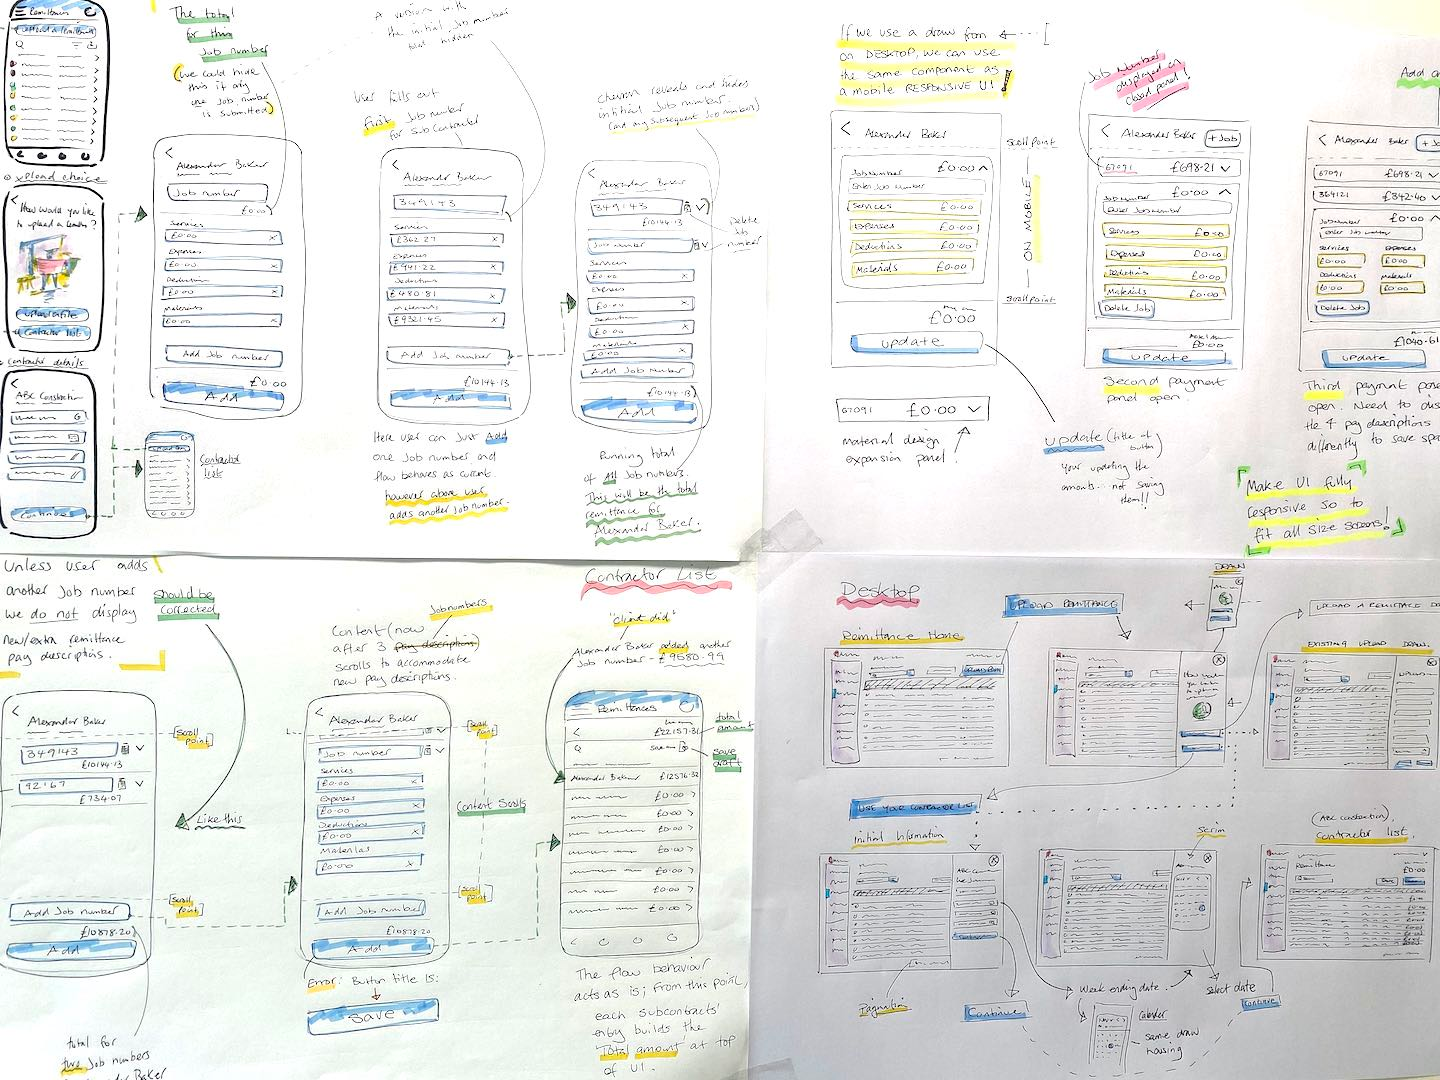 Remittances
Upload a remittance
Q
upload choice
How would you like
to upload a
Upload a file
Contractor list
Contractor details
ABC Construction
Continue
The total
for this
Job number
(We could hide
this if any
one Job number
is submitted)
A version with
the initial Job number
total hidden
Alexander Baker
Job number
£0.00
Services
£0.00 x
Expenses
£0.00 x
Deductions
£0.00 x
Materials
£0.00 x
Add Job number
£0.00
Add
Contractor
list
User fills out
First Job number
for subcontractor
Alexander Baker
349143
Services
£362.27 x
Expenses
Deductions
£480.81
Materials
£9321.45 x
Add Job number
£10144.13
Add
Here user can just Add
one Job number and
flow behaves as current.
however above user
adds another Job number.
chevron reveals and hides
initial Job number.
(and any subsequent Job numbers)
Alexander Baker
349143
£10144.13
Job number
Services
£0.00 x
Expenses
£0.00 x
Deductions
£0.00 x
Materials
£0.00 x
Add Job number
£10144.13
Add
Delete
Job
number
Running total
of all Job numbers.
This will be the total
remittance for
Alexander Baker.
If we use a draw from
on DESKTOP, we can use
the same component as
a mobile RESPONSIVE UI!
Alexander Baker
£0.00
Job number
Enter Job number
Services £0.00
Expenses £0.00
Deductions £0.00
Materials £0.00
£0.00
update
Scroll point
ON MOBILE
Scroll point
67091 £0.00
material design
expansion panel!
update (title of
button)
Your updating the
amounts... not saving
them!!
Job Number
displayed on
closed panel!
Alexander Baker
+ Job
67091 £698.21
£0.00
Job number
Enter Job number
Services £0.00
Expenses £0.00
Deductions £0.00
Materials £0.00
Delete Job
£0.00
update
Second payment
panel open
Add
Alexander Baker
67091 £698.21
364121 £342.40
Job number £0.00
Enter Job number
Services Expenses
£0.00 £0.00
Deductions Materials
£0.00 £0.00
Delete Job
update
Third payment
open. Need to
the 4 pay descriptions
differently to save
Make UI fully
responsive so to
fit all size screens!
Unless user adds
another Job number
we do not display
new/extra remittance
pay descriptions.
Should be
corrected
Alexander Baker
349143
£10144.13
92167
£734.07
Scroll
point
Like this
Add Job number
£10878.20
Add
Scroll
point
total for
two Job numbers
Job numbers
Content (now
after 3 pay descriptions)
scrolls to accommodate
new pay descriptions.
Alexander Baker
Job number
Services
£0.00 x
Expenses
£0.00 x
Deductions
£0.00 x
Materials
£0.00 x
Add Job number
£10878.20
Add
Scroll
point
Content Scrolls
Scroll
point
Error: Button title is:
Save
Contractor List
"client did"
Alexander Baker added another
Job number - £9580.99
Remittances
£22157.31
Q
Alexander Baker £12576.32
£0.00 >
£0.00 >
£0.00 >
£0.00 >
£0.00 >
£0.00 >
£0.00 >
total
amount
save
draft
The flow behaviour
acts as is; From this point,
each subcontracts'
entry builds the
'Total amount' at top
of UI.
Desktop
UPLOAD REMITTANCE
Remittance Home
DRAW
UPLOAD A REMITTANCE
EXISTING UPLOAD DRAW.
USE YOUR CONTRACTOR LIST
Initial Information
Scrim
(ABC Construction)
Contractor list.
Remittance
£0.00
Pagination
Continue
Week ending date
calendar
same draw
housing
Select date
Continue